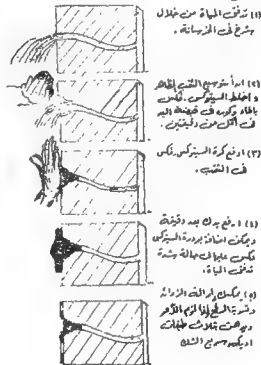 (١) تدفق المياة من خلال
شرخ فى الخرسانة .
(٢) ابدأ بتوسيع الثقب الظاهر
و اخلط السيتوكس . فكس
بالماء وكوره فى قبضة اليد
فى أقل من دقيقتين .
(٣) ادفع كرة السيتوكس . فكس
فى الثقب .
(٤) ارفع يدك بعد دقيقة
ويمكن اضافة بودرة السيتوكس
فكس عليها فى حالة شدة
تدفق المياة .
(٥) يمكنك إزالة الزوائد
وتسوية السطح إذا لزم الأمر
ويدهن ثلاث طبقات
اديكور سريع الشك